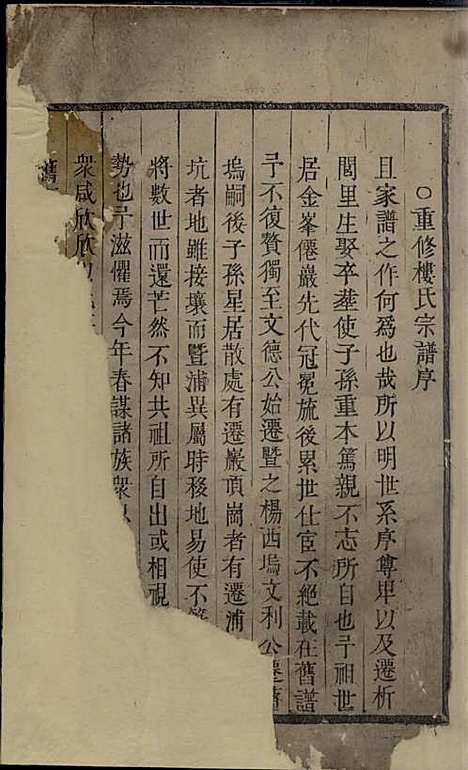 ○重修樓氏宗譜序
且家譜之作何爲也哉所以明世系序尊卑以及遷析
閭里生娶卒塟使子孫重本篤親不忘所自也予祖世
居金峯僊巖先代冠冕旒後累世仕宦不絶載在舊譜
予不復贅獨至文德公始遷暨之楊西塢文利公遷
塢嗣後子孫星居散處有遷巖頂崗者有遷浦
坑者地雖接壤而暨浦異屬時移地易使不
將數世而還芒然不知共祖所自出或相視
勢也予滋懼焉今年春謀諸族衆
衆咸欣欣
舊